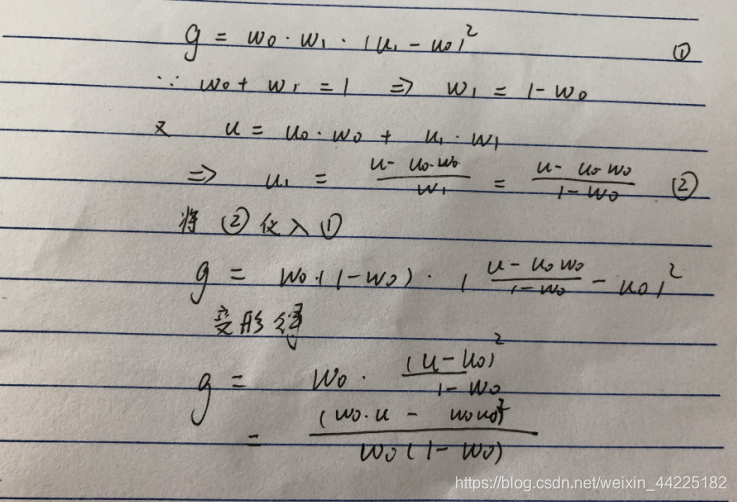 g = w0 · w1 · (u1 - u0)² ①
∵ w0 + w1 = 1 => w1 = 1 - w0
又 u = u0 · w0 + u1 · w1
=> u1 = (u - u0·w0)/w1 = (u - u0·w0)/(1 - w0) ②
将 ② 代入 ①
g = w0 · (1 - w0) · ((u - u0w0)/(1 - w0) - u0)²
变形得
g = w0 · (u - u0)²/(1 - w0)
= (w0·u - w0u0)²/(w0(1 - w0))
https://blog.csdn.net/weixin_44225182